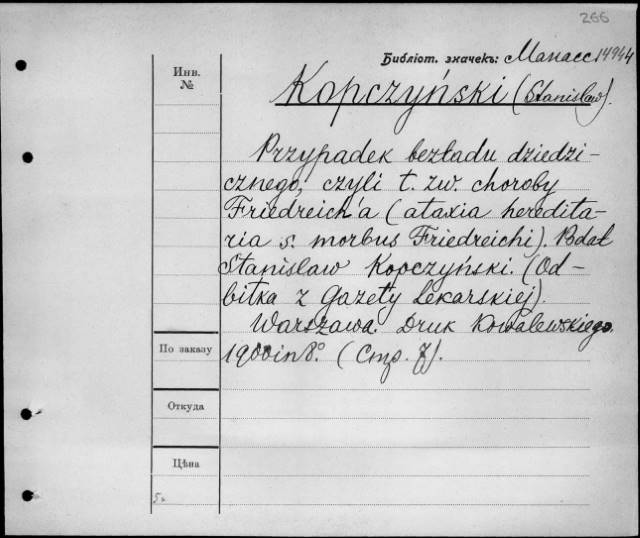 266
Библіот. значекъ: Манасс 14944
Инв.
№
Kopczyński (Stanisław).
Przypadek bezładu dziedzi-
cznego, czyli t. zw. choroby
Friedreich'a (ataxia heredita-
ria s. morbus Friedreichi). Podał
Stanisław Kopczyński. (Od-
bitka z Gazety Lekarskiej).
Warszawa. Druk Kowalewskiego.
По заказу
1900 in 8°. (Стр. 7).
Откуда
Цѣна